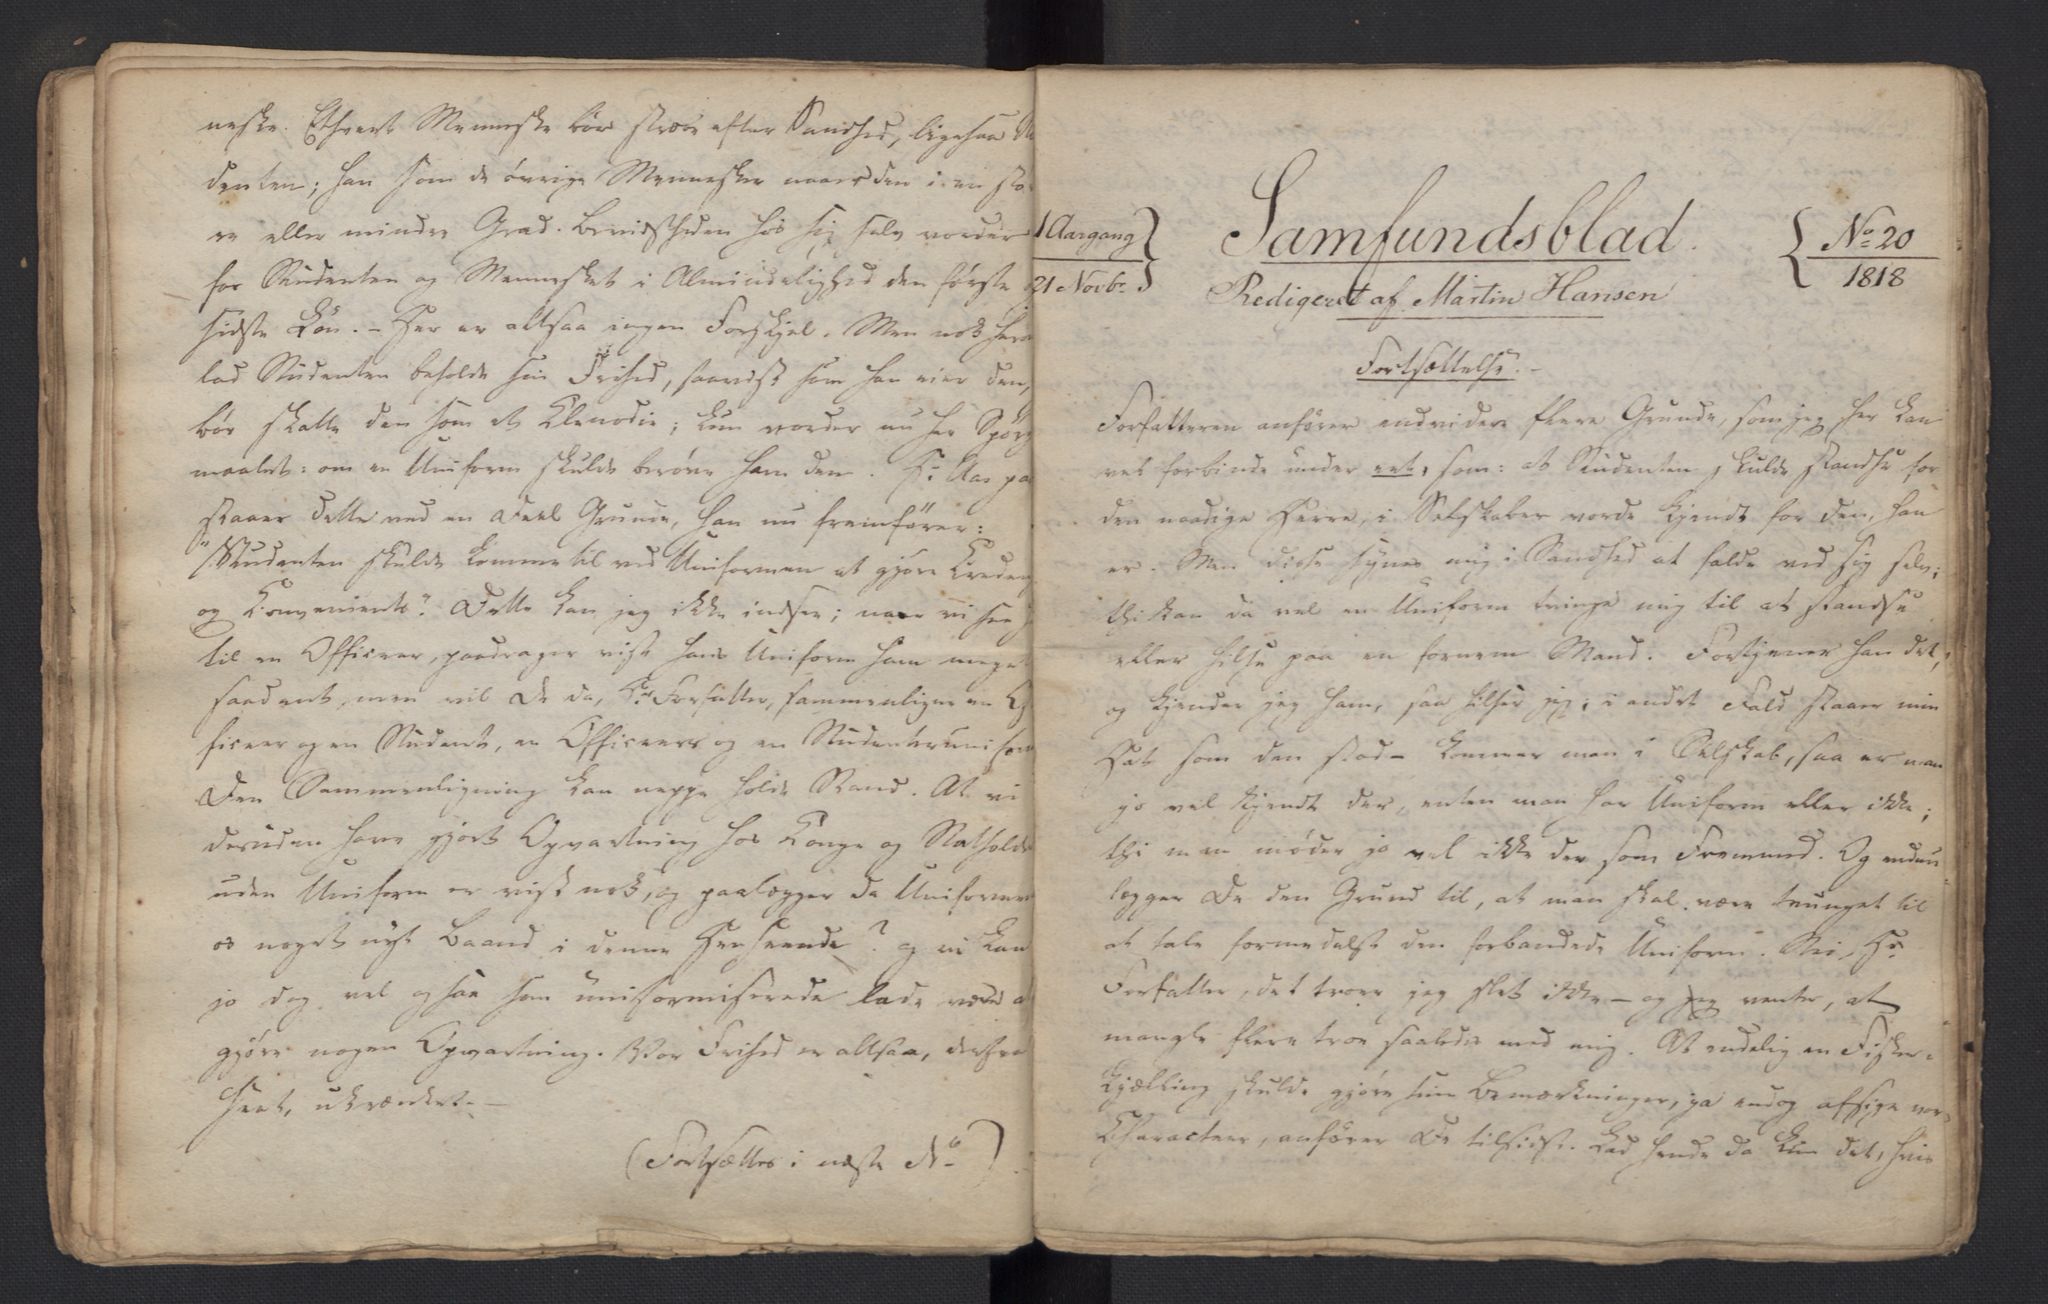 neske. Ethvert Menneske bør stræve efter Sandhed, ligesaa Stu
denten; han som de øvrige Mennesker naaer den i en stø
re eller mindre Grad. Bevidstheden hos sig selv vorder
for Studenten og Mennesket i Almindelighed den første
sidste Løn. – Her er altsaa ingen Forskjel. Men nok herom
lad Studenten beholde sin Frihed, saavidst som han eier den,
bør skatte den som et Klenodie; kun vorder nu her Spørgs
maalet: om en Uniform skulde berøve ham den. Hr. Aas paa
staaer dette ved en Deel Grunde, han nu fremfører:
"Studenten skulde komme til ved Uniformen at gjøre
og Convenients". Dette kan jeg ikke indsee; naar vi see
til en Officeer, paadrager vist hans Uniform ham meget
saadant, men vil De da, Hr Forfatter, sammenligne en Of
ficeer og en Student, en Officeers og en Studenteruniform
Den Sammenligning kan neppe holde Stand. At vi
desuden have gjort Opvartning hos Konge og Statholder
uden Uniform er vist nok, og paalægger da Uniformen
os noget nyt Baand i denne Henseende? og vi kan
jo dog vel ogsaa som uniformiserede lade være at
gjøre nogen Opvartning. Vor Frihed er altsaa, derfra
seet, ukrænket. –
(Fortsættes i næste No)
1 Aargang
21 Novbr.
Samfundsblad.
No 20
1818
Redigeret af Martin Hansen
Fortsættelse. –
Forfatteren anfører endvidere flere Grunde, som jeg her kan
vel forbinde under eet, som: at Studenten skulde standse for
den naadige Herre, i Selskaber vorde kjendt for den, han
er. Men disse synes mig i Sandhed at falde ved sig selv;
thi kan da vel en Uniform tvinge mig til at standse
eller hilse paa en fornem Mand. Fortjener han det,
og kjender jeg ham, saa hilser jeg; i andet Fald staaer min
Hat som den stod – kommer man i Selskab, saa er man
jo vel kjendt der, enten man har Uniform eller ikke;
thi man møder jo vel ikke der som Fremmed. Og endnu
lægger De den Grund til, at man skal være tvunget til
at tale formedelst den forbandede Uniform. Nei, Hr
Forfatter, det troer jeg slet ikke – og jeg venter, at
mangle flere troe saaledes med mig. At endelig en Fisker-
kjælling skulde gjøre sine Bemærkninger, ja endog afsige vor
Characteer, anfører De tilsidst. Lad hende da kun det, hvis